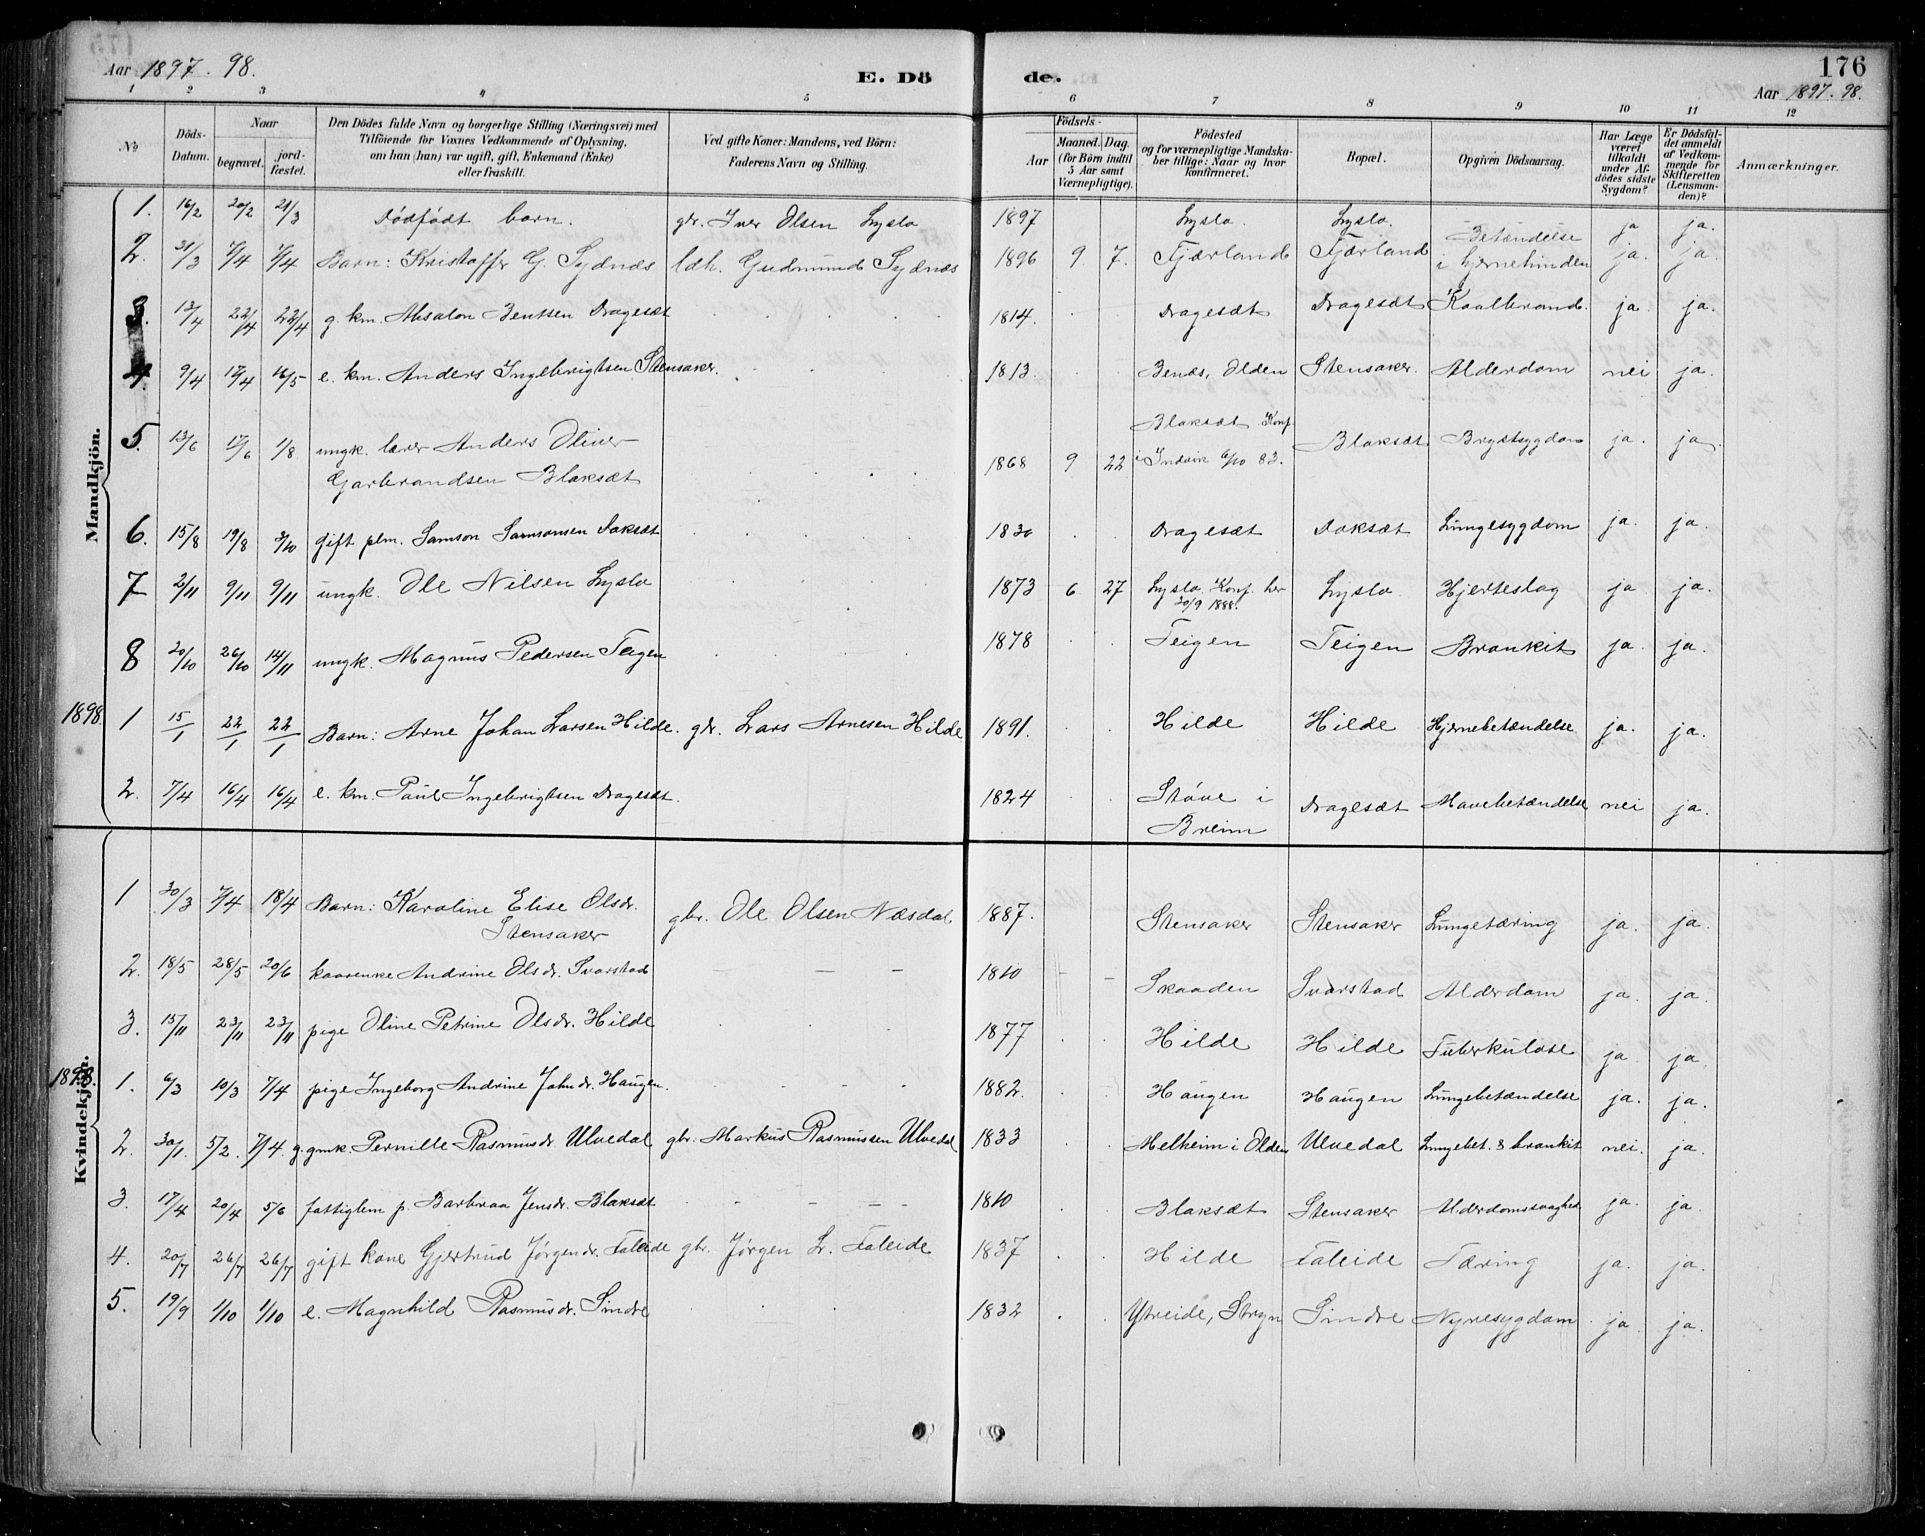 Aar 1897. 98.
E. Dö
de.
176
Aar 1897. 98.
1 2 3 4 5 6 7 8 9 10 11 12
No
Döds-Datum.
Naar
begravet.
jord-fæstet.
Den Dödes fulde Navn og borgerlige Stilling (Næringsvei) med
Tilföiende for Voxnes Vedkommende af Oplysning,
om han (hun) var ugift, gift, Enkemand (Enke)
eller fraskilt.
Ved gifte Koner: Mandens, ved Börn:
Faderens Navn og Stilling.
Födsels-
Aar
Maaned. Dag.
(for Börn indtil
5 Aar samt
Værnepligtige).
Födested
og for værnepligtige Mandska-
ber tillige: Naar og hvor
konfirmeret.
Bopæl.
Opgiven Dödsaarsag.
Har Læge
været
tilkaldt
under Af-
dödes sidste
Sygdom?
Er Dödsfal-
det anmeldt
af Vedkom-
mende for
Skifteretten
(Lensman-
den)?
Anmærkninger.
Mandkjön.
1. 16/2 20/2 21/3 Dödfödt barn. gbr. Iver Olsen Lyslo 1897 Lyslo. Lyslo. ja ja.
2. 31/3 7/4 7/4 Barn: Kristoffer G. Sydnæs ldh. Gudmund Sydnæs 1896 9. 7. Fjærland Fjærland Betændelse i hjernehinden ja. ja.
3. 13/4 22/4 22/4 g. km. Absalon Bentsen Dragesæt 1814. Dragesæt Dragesæt Koalbrand. ja. ja.
4. 9/4 17/4 16/5 e. km. Anders Ingebrigtsen Stensaker. 1813. Benæs, Olden Stensaker. Alderdom nei ja.
5. 13/6 17/6 1/8 ungk. lærer Anders Oliver
Garbrandsen Blaksæt 1868 9 22 Blaksæt Konf. i Indvik 6/10 83. Blaksæt Brystsygdom ja. ja.
6. 15/8 19/8 3/10 gift plm. Samson Samsonsen Daksæt 1830 Dragesæt Daksæt Lungesygdom ja. ja.
7 2/11 9/11 9/11 ungk. Ole Nilsen Lyslo 1873 6 27 Lyslo. Konf. her 30/9 1888. Lyslo. Hjerteslag ja ja.
8 20/10 26/10 14/11 ungk. Magnus Pedersen Teigen 1878 Teigen Teigen Bronkit ja. ja.
1898.
1 15/1 22/1 22/1 Barn: Arne Johan Larsen Hilde. gbr. Lars Arnesen Hilde 1891. Hilde Hilde Hjernebetændelse ja. ja.
2. 7/4 16/4 16/4 e. km. Paul Ingebrigtsen Dragesæt. 1824 Støve i Breim Dragesæt Mavebetændelse nei ja.
Kvindekjön.
1 30/3 7/4 18/4 Barn: Karoline Elise Olsdr.
Stensaker gbr. Ole Olsen Næsdal 1887. Stensaker Stensaker Lungetæring ja. ja.
2. 18/5 28/5 20/6 kaarenke Andrine Olsdr. Svarstad 1810 Skaaden Svarstad Alderdom ja. ja.
3. 15/11 23/11 23/11 pige Oline Petrine Olsdr. Hilde 1877 Hilde Hilde Tuberkulose ja. ja.
1898.
1. 6/3 10/3 7/4 pige Ingeborg Andrine Johndr. Haugen. 1882. Haugen Haugen Lungebetændelse ja. ja.
2. 30/1. 5/2. 7/4. g. gmk. Pernille Rasmusdr. Ulvedal gbr. Markus Rasmussen Ulvedal 1833 Melheim i Olden Ulvedal Lungebet. & bronkit nei. ja.
3. 17/4 20/4 5/6 fattiglem p. Barbraa Jensdr. Blaksæt 1810 Blaksæt Stensaker Alderdomssvaghed ja. ja.
4. 20/7 26/7 26/7 gift kone Gjertrud Jørgendr. Faleide gbr. Jørgen L. Faleide 1837 Hilde Faleide Tæring ja. ja.
5. 19/9 1/10 1/10 e. Magnhild Rasmusdr. Sindre 1832 Ytreide, Stryn Sindre Nyresygdom ja. ja.